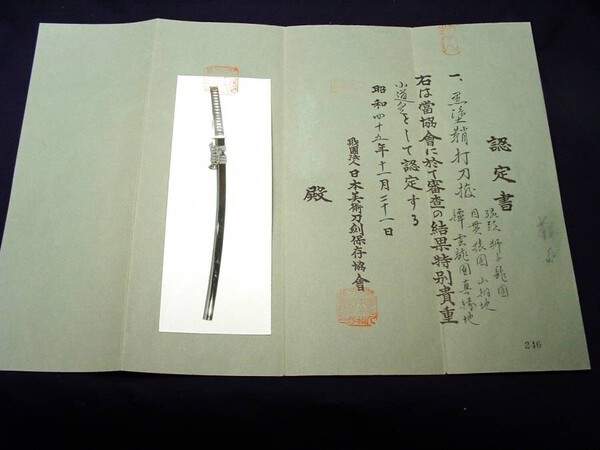 認定書
一、黒塗鞘打刀拵
縁頭 獅子龍図
目貫 猿図 山銅地
鐔 雲龍図 真鍮地
右は當協會に於て審査の結果特別貴重
小道具として認定する
昭和四十五年十一月二十一日
財團法人日本美術刀劍保存協會
殿
246